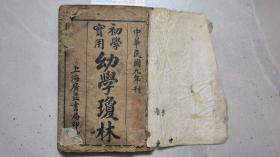 中華民國九年刊
初學
實用
幼學瓊林
上海廣益書局印